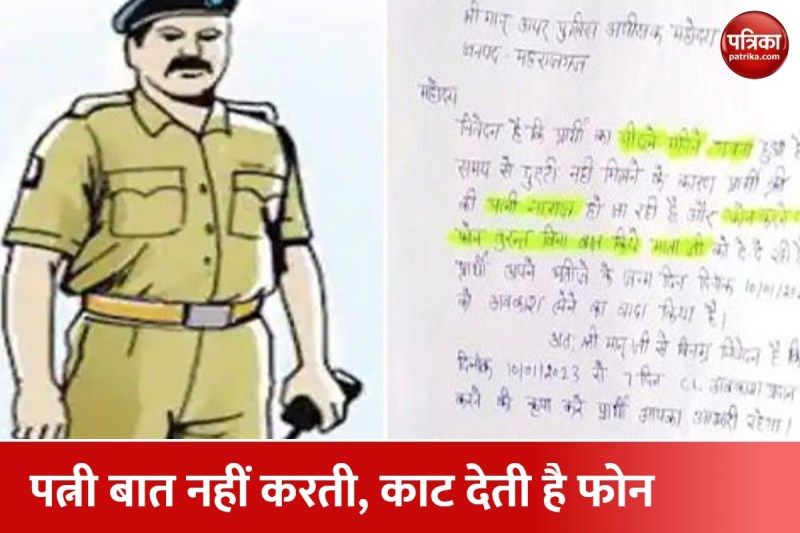 श्रीमान् अपर पुलिस अधीक्षक महोदय
जनपद - महराजगंज
महोदय
निवेदन है कि प्रार्थी का पिछले महिने शादी हुआ है
समय से छुट्टी नहीं मिलने के कारण प्रार्थी की
की पत्नी नाराज हो जा रही है और फोन करने
फोन तुरन्त बिना बात किये माता जी को दे दे रही है
प्रार्थी अपने भतीजे के जन्म दिन दिनांक 10/01/202
को अवकाश लेने का वादा किया है।
अतः श्री मान् जी से विनम्र निवेदन है कि
दिनांक 10/01/2023 से 7 दिन CL अवकाश प्रदान
करने की कृपा करें प्रार्थी आपका आभारी रहेगा।
पत्रिका
patrika.com
पत्नी बात नहीं करती, काट देती है फोन